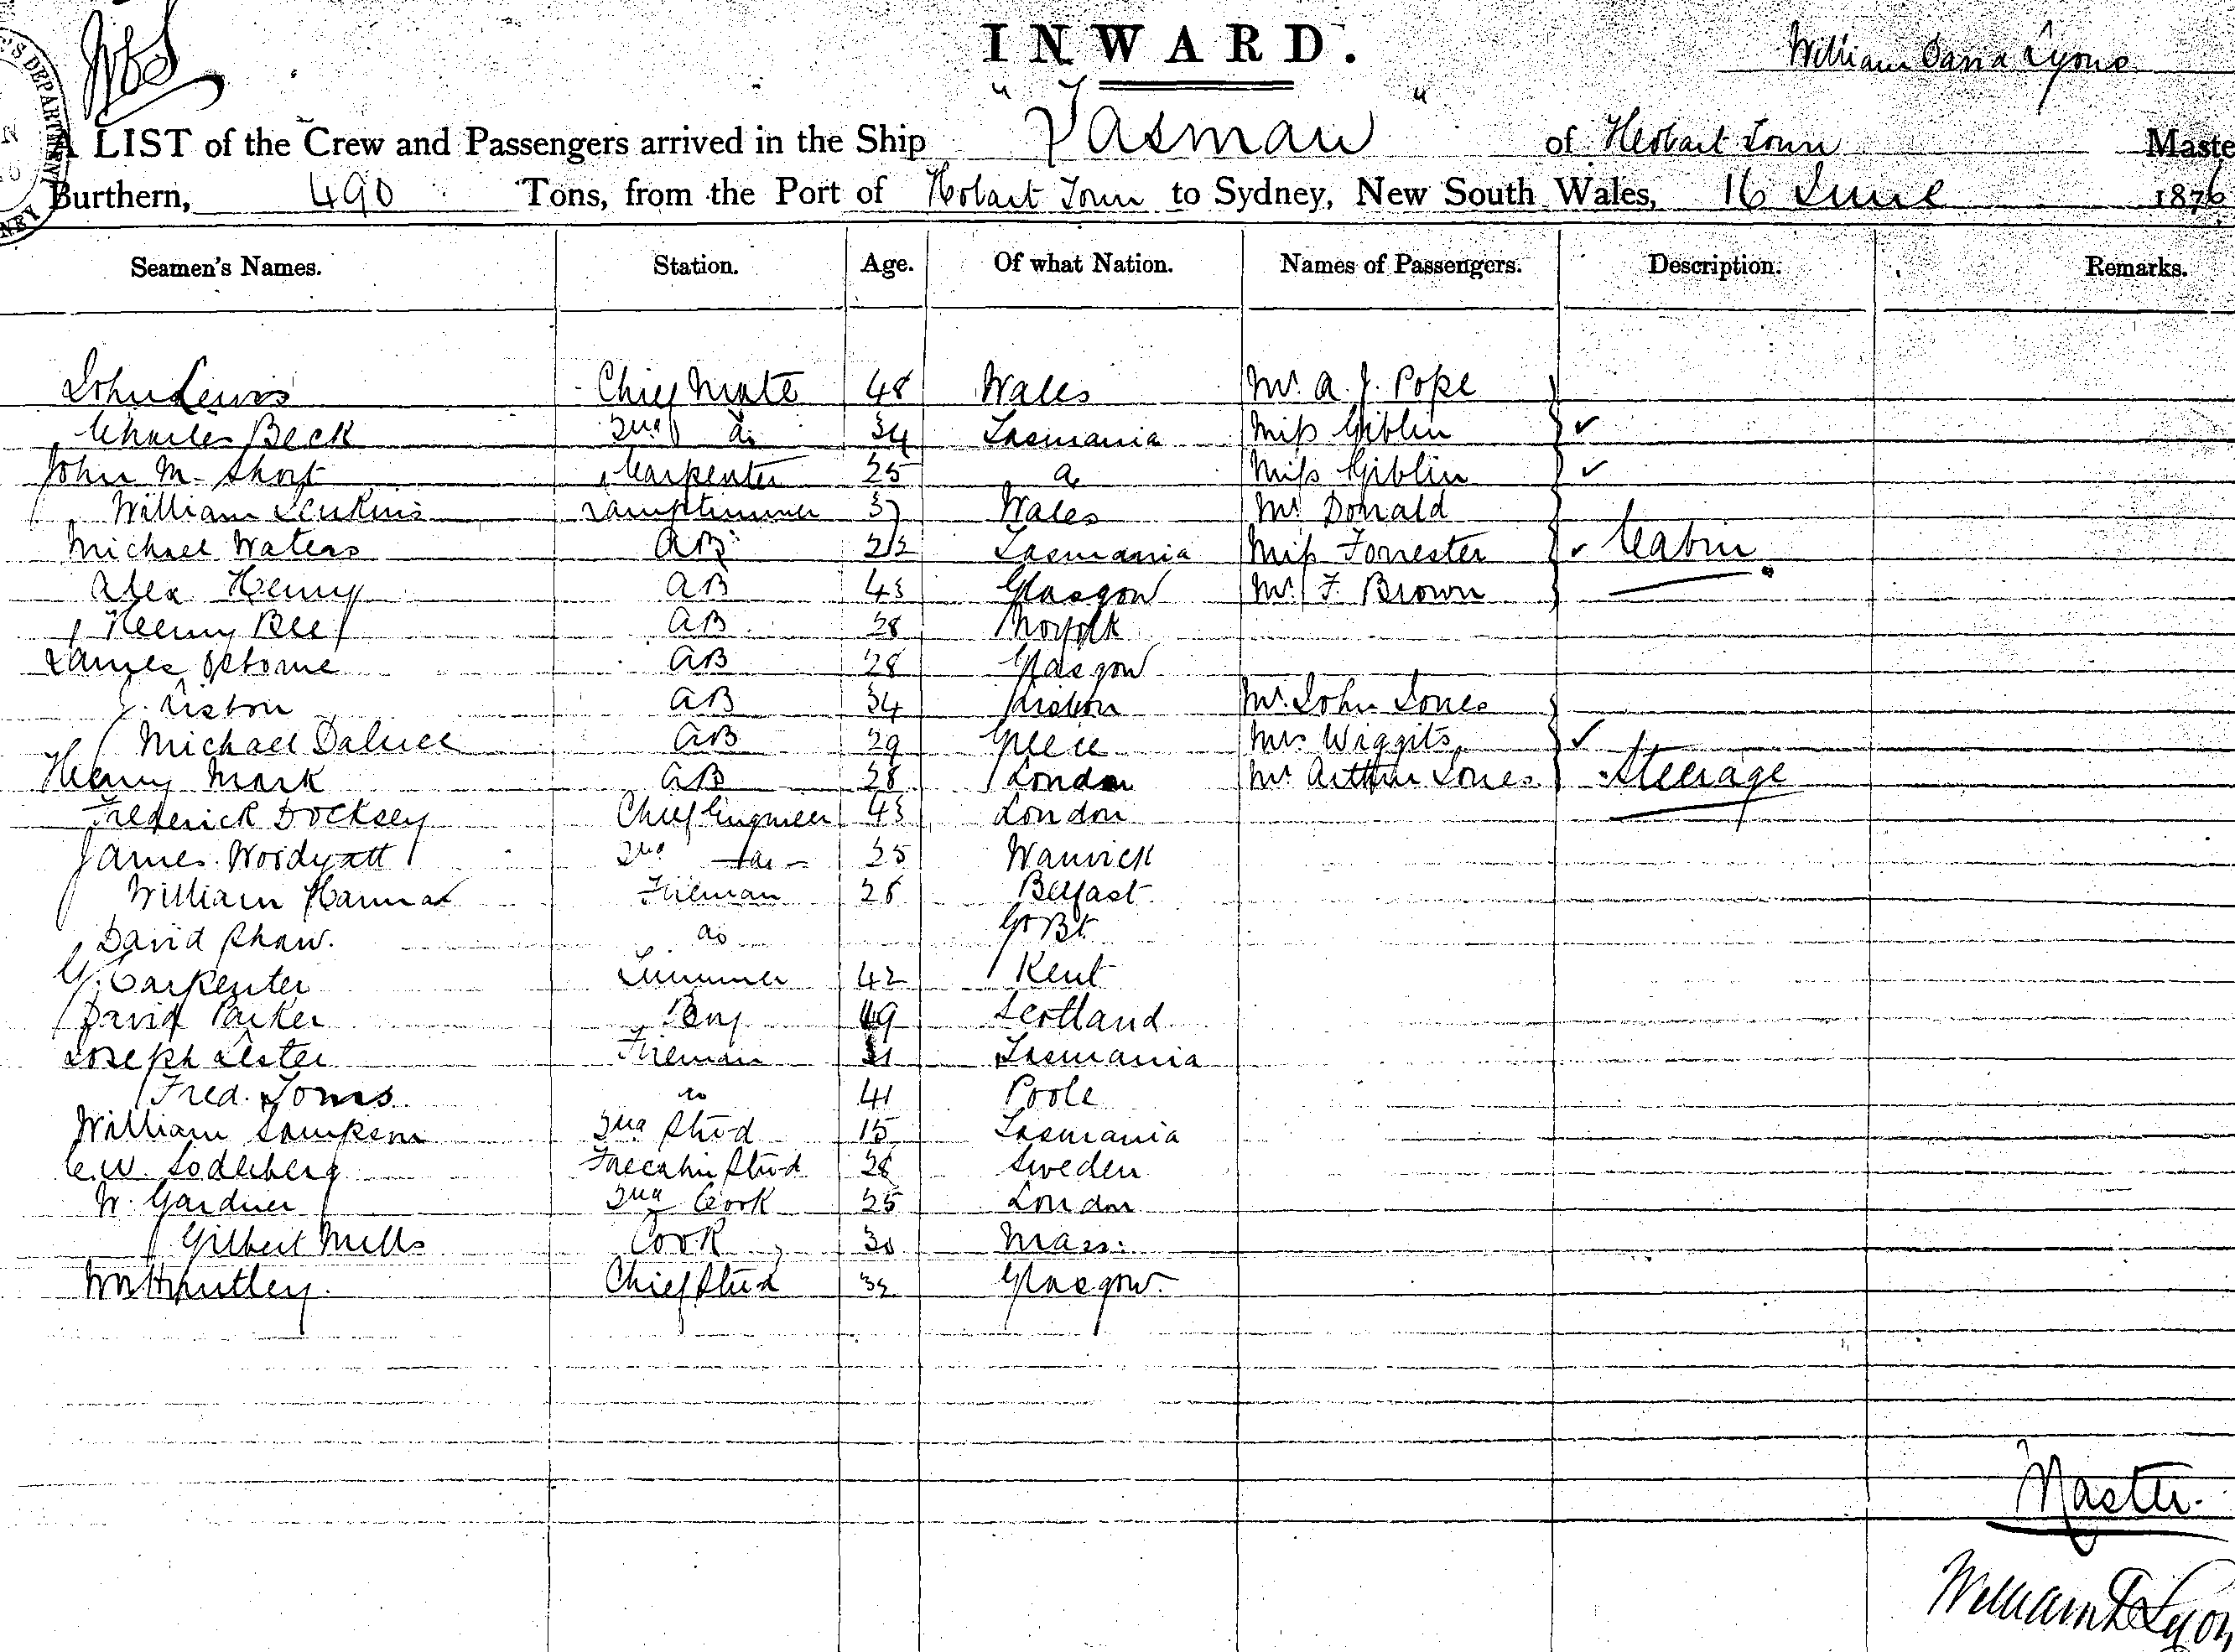 INWARD.
William David Lyons
A LIST of the Crew and Passengers arrived in the Ship "Tasman" of Hobart Town Maste
Burthern, 490 Tons, from the Port of Hobart Town to Sydney, New South Wales, 16 June 1876
Seamen's Names. Station. Age. Of what Nation. Names of Passengers. Description. Remarks.
John Lewis Chief Mate 48 Wales Mr. A. J. Pope
Charles Beck 2nd do 34 Tasmania Miss Giblin ✓
John M. Short Carpenter 25 do Miss Giblin ✓
William Jenkins Lamptrimmer 37 Wales Mr Donald
Michael Waters AB 22 Tasmania Miss Forrester ✓ Cabin
Alex Henry AB 43 Glasgow Mr. F. Brown
Henry Bee AB 28 Norfolk
James Osborne AB 28 Glasgow
J. Liston AB 34 Lisbon Mr. John Jones
Michael AB 29 Greece Mrs Wiggits ✓
Henry Mark AB 28 London Mr Arthur Jones Steerage
Frederick Docksey Chief Engineer 43 London
James Woodyatt 2nd do 25 Warwick
William Hanna Fireman 28 Belfast
David Shaw. do Gt Bt.
G. Carpenter Trimmer 42 Kent
David Parker Boy 19 Scotland
Joseph Lester Fireman 31 Tasmania
Fred. Toms do 41 Poole
William Sampson 2nd Stwd 15 Tasmania
C. W. Soderberg Forecabin Stwd 28 Sweden
W. Gardner 2nd Cook 25 London
Gilbert Mills Cook 30 Mass.
Wm Huntley. Chief Stwd 32 Glasgow.
Master.
William D Lyon